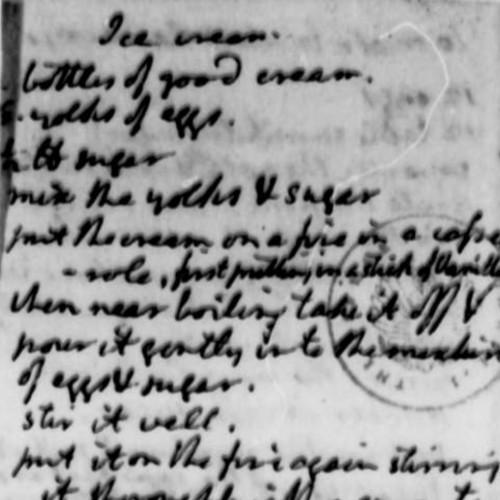 Ice cream.
bottles of good cream.
yolks of eggs.
℔ sugar
mix the yolks & sugar
put the cream on a fire in a casse
-role, first putting in a stick of Vanilla
when near boiling take it off &
pour it gently into the mixture
of eggs & sugar.
stir it well.
put it on the fire again stirring
it thoroughly